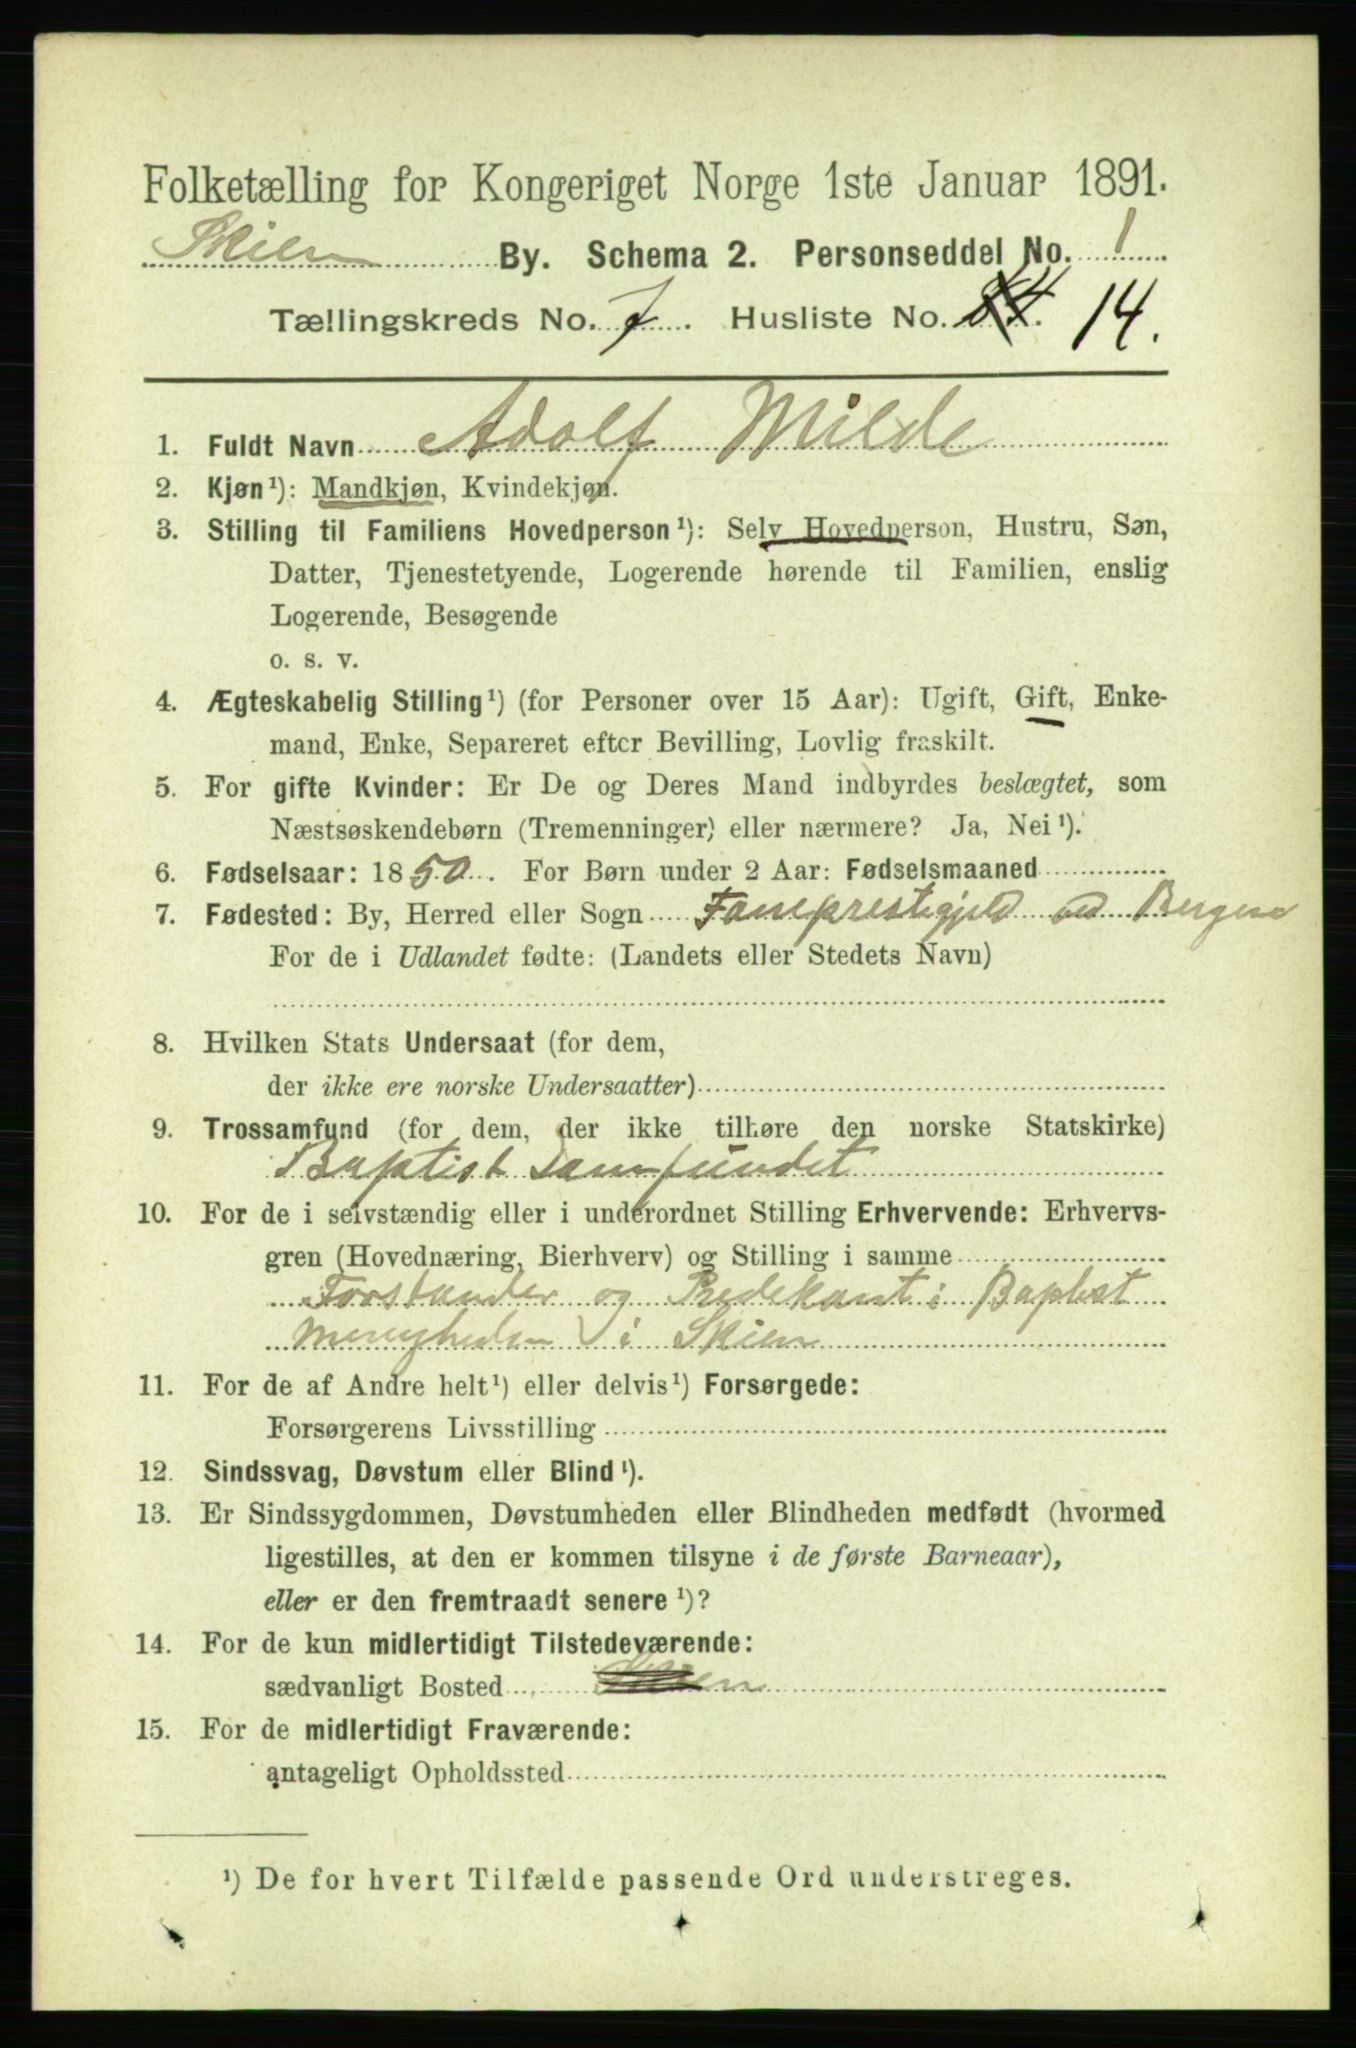 Folketælling for Kongeriget Norge 1ste Januar 1891.
Skien By. Schema 2. Personseddel No. 1
Tællingskreds No. 7. Husliste No. 14.
1. Fuldt Navn Adolf Milde
2. Kjøn¹): Mandkjøn, Kvindekjøn.
3. Stilling til Familiens Hovedperson¹): Selv Hovedperson, Hustru, Søn,
Datter, Tjenestetyende, Logerende hørende til Familien, enslig
Logerende, Besøgende
o. s. v.
4. Ægteskabelig Stilling¹) (for Personer over 15 Aar): Ugift, Gift, Enke-
mand, Enke, Separeret efter Bevilling, Lovlig fraskilt.
5. For gifte Kvinder: Er De og Deres Mand indbyrdes beslægtet, som
Næstsøskendebørn (Tremenninger) eller nærmere? Ja, Nei¹).
6. Fødselsaar: 1850. For Børn under 2 Aar: Fødselsmaaned
7. Fødested: By, Herred eller Sogn Faneprestegjeld ved Bergen
For de i Udlandet fødte: (Landets eller Stedets Navn)
8. Hvilken Stats Undersaat (for dem,
der ikke ere norske Undersaatter)
9. Trossamfund (for dem, der ikke tilhøre den norske Statskirke)
Baptist Samfundet
10. For de i selvstændig eller i underordnet Stilling Erhvervende: Erhvervs-
gren (Hovednæring, Bierhverv) og Stilling i samme
Forstander og Predekant i Baptist
Menigheden i Skien
11. For de af Andre helt¹) eller delvis¹) Forsørgede:
Forsørgerens Livsstilling
12. Sindssvag, Døvstum eller Blind¹).
13. Er Sindssygdommen, Døvstumheden eller Blindheden medfødt (hvormed
ligestilles, at den er kommen tilsyne i de første Barneaar),
eller er den fremtraadt senere¹)?
14. For de kun midlertidigt Tilstedeværende:
sædvanligt Bosted Skien
15. For de midlertidigt Fraværende:
antageligt Opholdssted
¹) De for hvert Tilfælde passende Ord understreges.